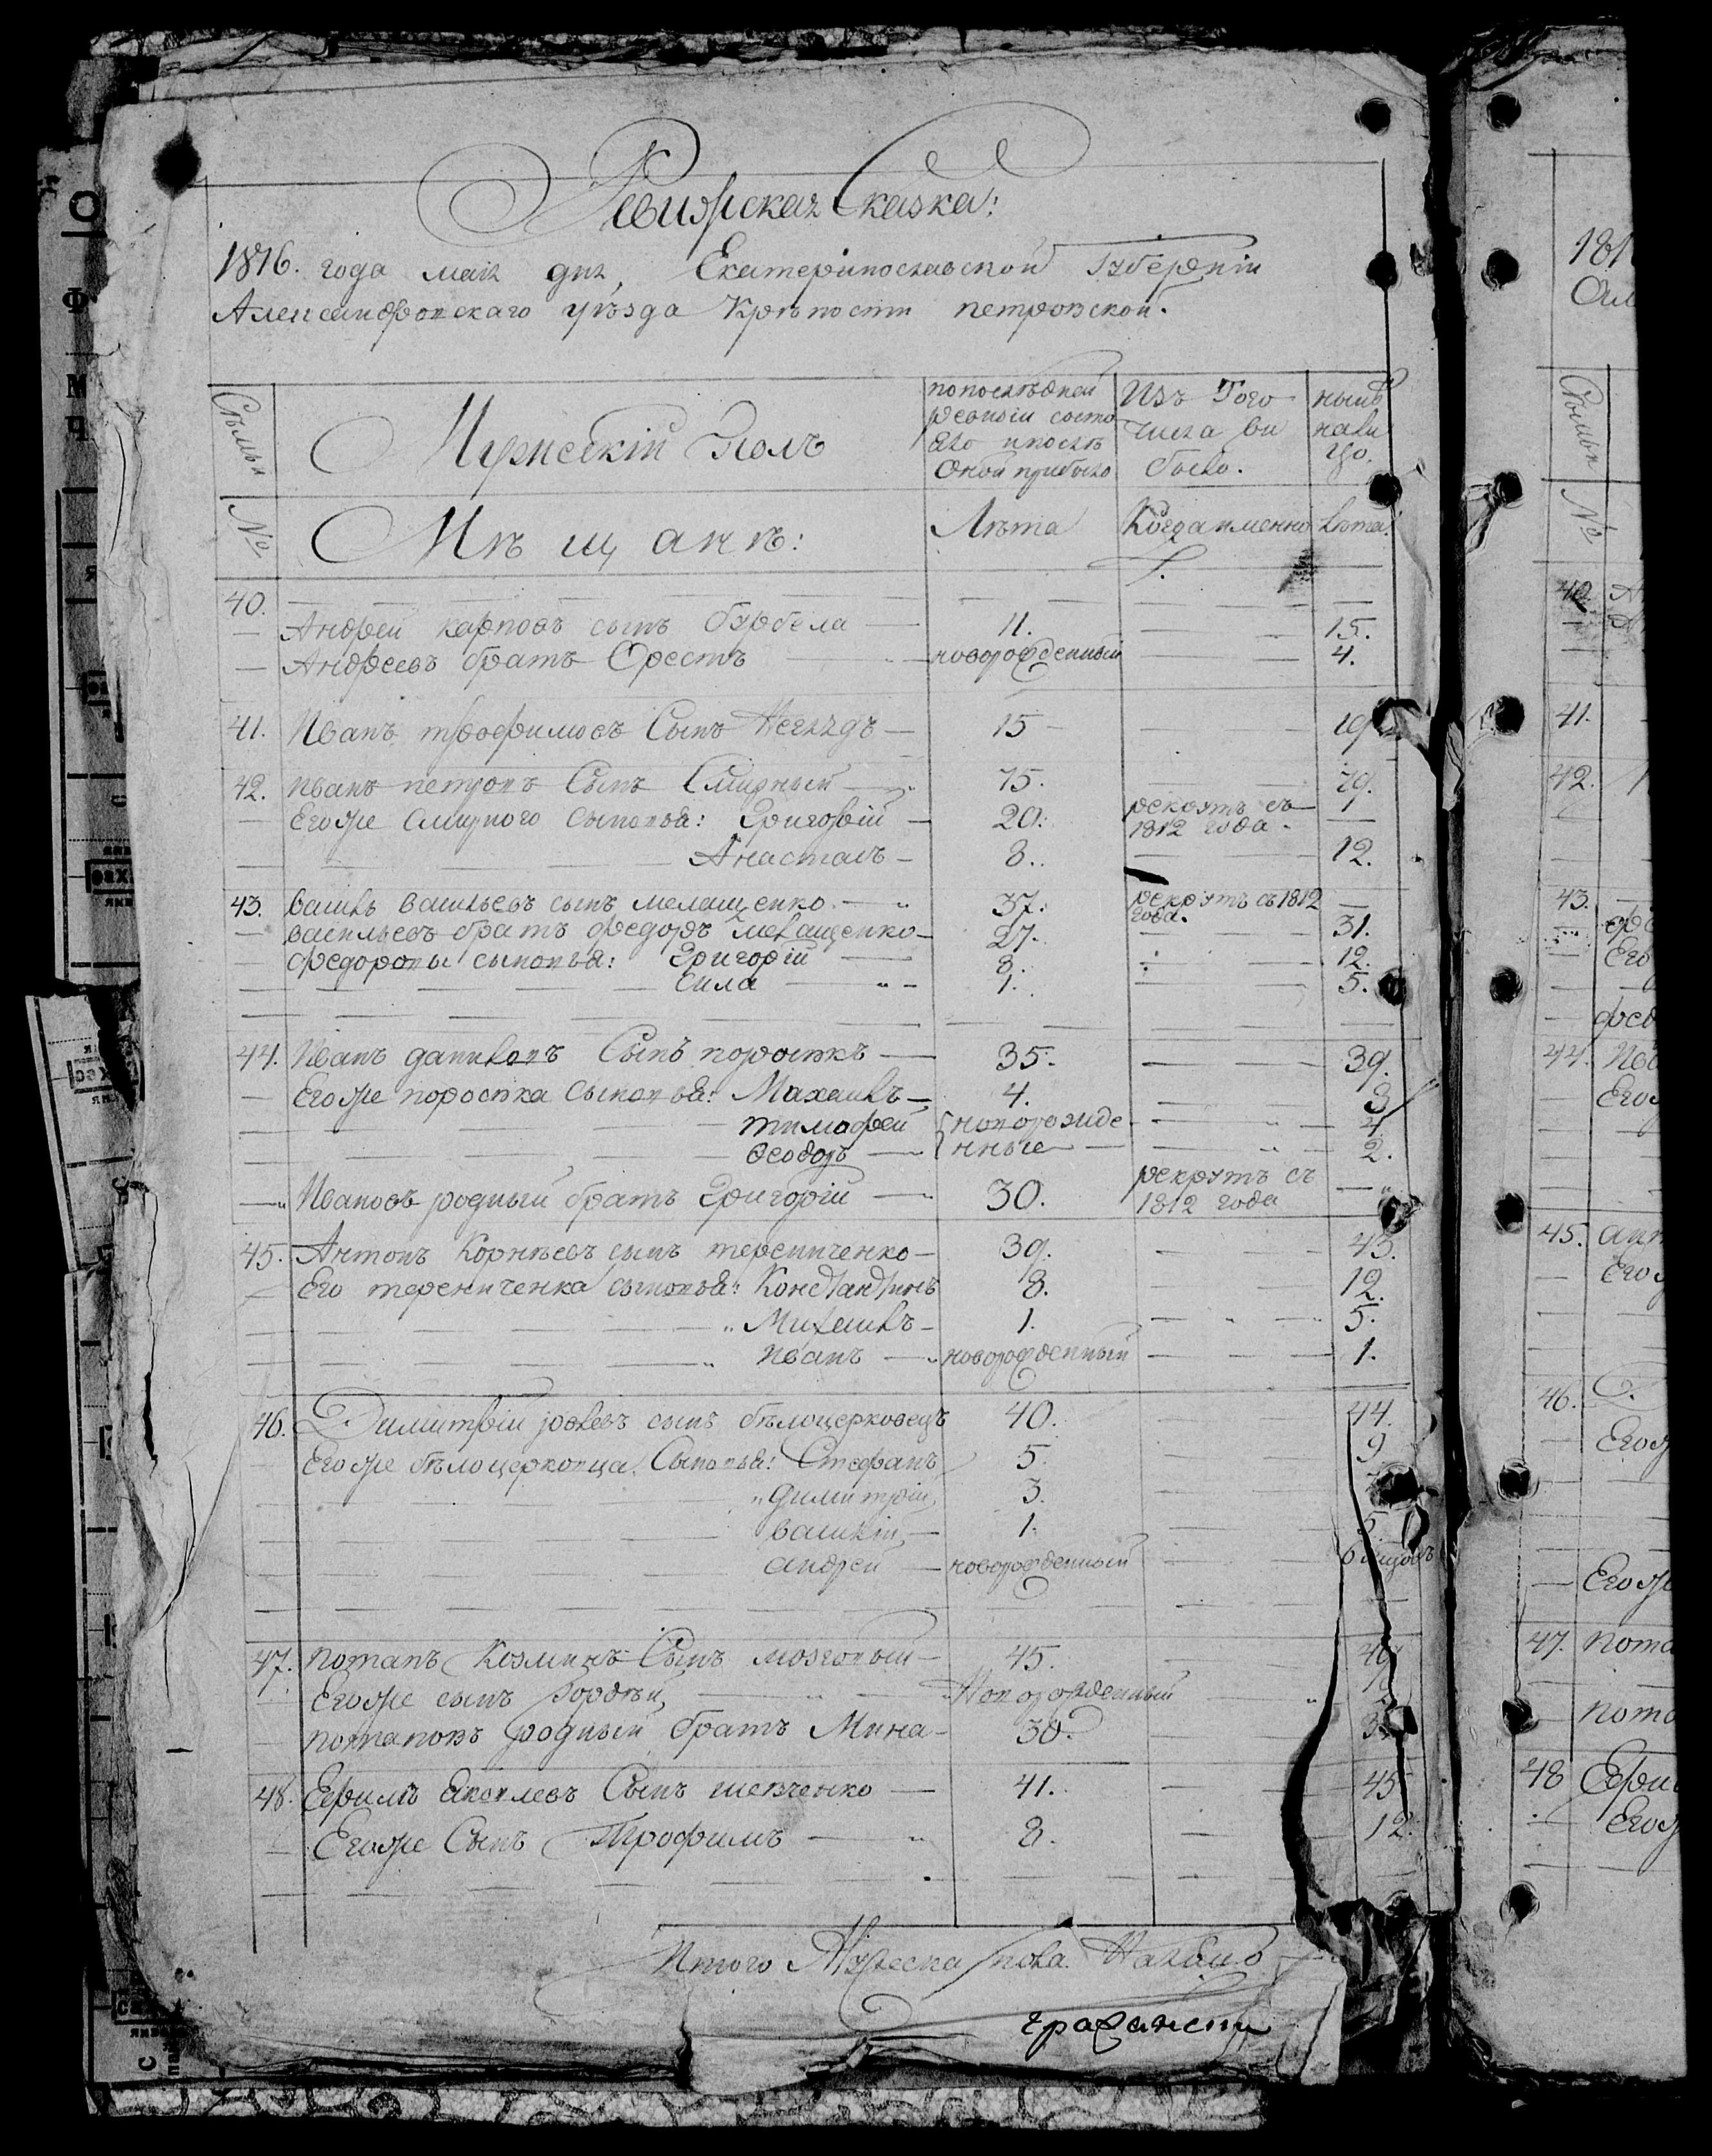 Ревижская Сказка:
1816. года маія дня, Екатеринославской Губерніи
Александровскаго уѣзда Крѣпости петровской.
Семьи
Мужескій Полъ
по послѣдней ревизіи состояло и послѣ оной прибыло
Изъ Того числа выбыло.
нынѣ на лицо.
№
Мѣщанѣ:
Лѣта
Когда именно
лѣта.
40.
Андрей карповъ сынъ бурбела 11. 15.
Андреевъ братъ Орестъ новорожденный 4.
41. Иванъ трофимовъ Сынъ Негладъ 15 19
42. иванъ петровъ Сынъ Смирный 15. 19.
Егоже смирного сыновья: Григорій 20. рекрутъ съ 1812 года.
Анастасъ 8. 12.
43. василь васильевъ сынъ мелащенко 37. рекрутъ съ 1812 года.
васильевъ братъ федоръ мелащенко 27. 31.
федоровы сыновья: Григорій 8. 12.
Сила 1. 5.
44. Иванъ даниловъ Сынъ поросткъ 35. 39.
Егоже поростка Сыновья: Михаилъ 4. 8
тимофей новорожде 4
Феодоръ нные 2.
Ивановъ родный братъ Григорій 30. рекрутъ съ 1812 года
45. Антонъ Корнѣевъ сынъ терениченко 39. 43.
Его терениченка сыновья: Константинъ 8. 12.
Михаилъ 1. 5.
иванъ новорожденный 1.
46. Димитрій іовлевъ сынъ бѣлоцерковецъ 40. 44.
Егоже бѣлоцерковца Сыновья: Стефанъ 5. 9
димитрій 3.
василій 1. 5.
андрей новорожденный
47. потапъ Козминъ Сынъ мозговый 45. 49
Егоже сынъ гордѣй Новорожденный
потаповъ родный братъ Мина 30.
48. Ефимъ Яковлевъ Сынъ шевченко 41. 45
Егоже Сынъ Трофимъ 8. 12.
Итого Мужеска пола Налицо
181
Семьи
№
40.
41.
42.
43.
Его
44. Ива
Егож
45. ант
Егож
46. Д
Егож
Егоже
47. пота
пота
48 Ефи
Егож